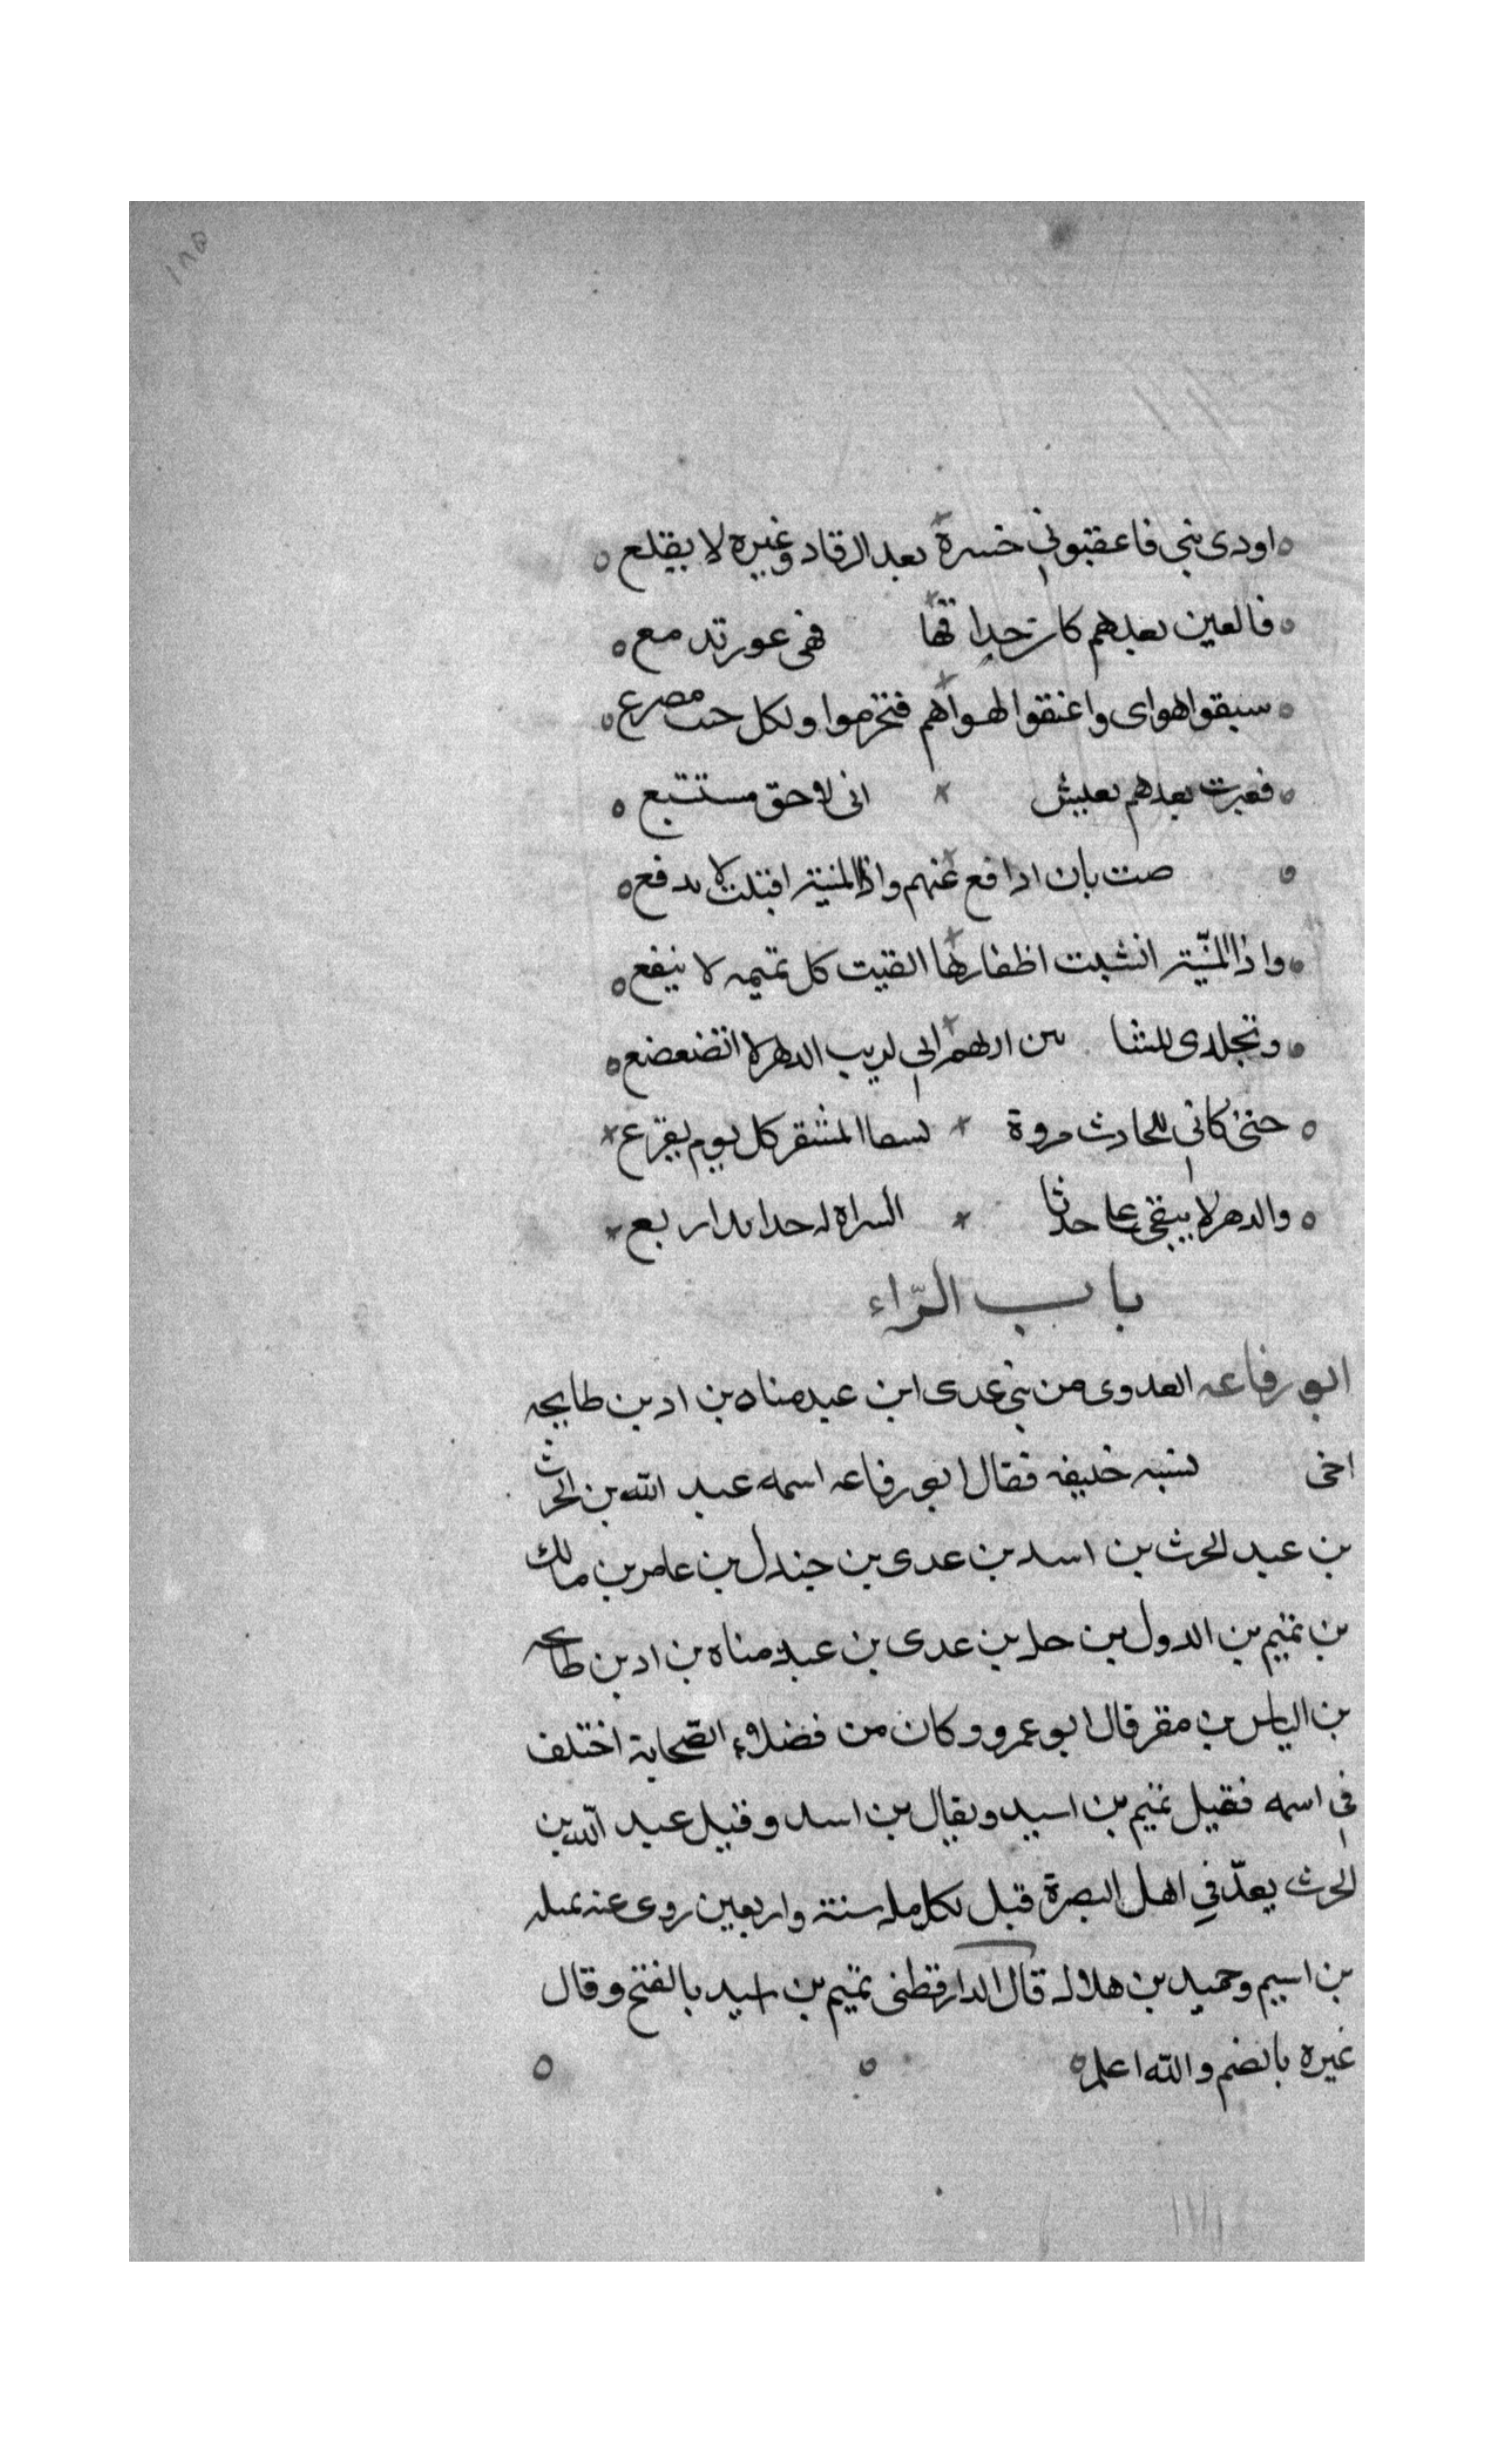 ١٨٥
اودى بنى فاعقبونى حسرة بعد الرقاد وغيره لا يقلع
فالعين بعدهم كان حداقها فهى عور تدمع
سبقوا هواى واعنقوا لهواهم فتخرموا ولكل جنب مصرع
فغبرت بعدهم بعيش انى لاحق مستتبع
صت بان ادافع عنهم واذا المنية اقبلت لا تدفع
واذا المنية انشبت اظفارها الفيت كل تميمه لا ينفع
وتجلدى للشا من اريهم انى لريب الدهر لا اتضعضع
حتى كانى للحادث مروة المشقر كل يوم يقرع
والدهر لا يبقى على حدثا السراة له جدايد اربع
باب الرّاء
ابو رفاعه العدوى من بنى عدى ابن عبد مناه بن اد بن طابخه
اخى نسبه خليفه فقال ابو رفاعه اسمه عبد الله بن الحرث
بن عبد الحرث بن اسد بن عدى بن جندل بن عامر بن مالك
بن تميم بن الدول بن حل بن عدى بن عبد مناه بن اد بن طابخه
بن الياس بن مضر قال ابو عمرو وكان من فضلاء الصّحابة اختلف
فى اسمه فقيل تميم بن اسيد ويقال بن اسد وقيل عبد الله بن
الحرث يعدّ فى اهل البصرة قبل بكابل سنة واربعين روى عنه صله
بن اسيم وحميد بن هلال قال الدارقطنى تميم بن اسيد بالفتح وقال
غيره بالضم والله اعلم